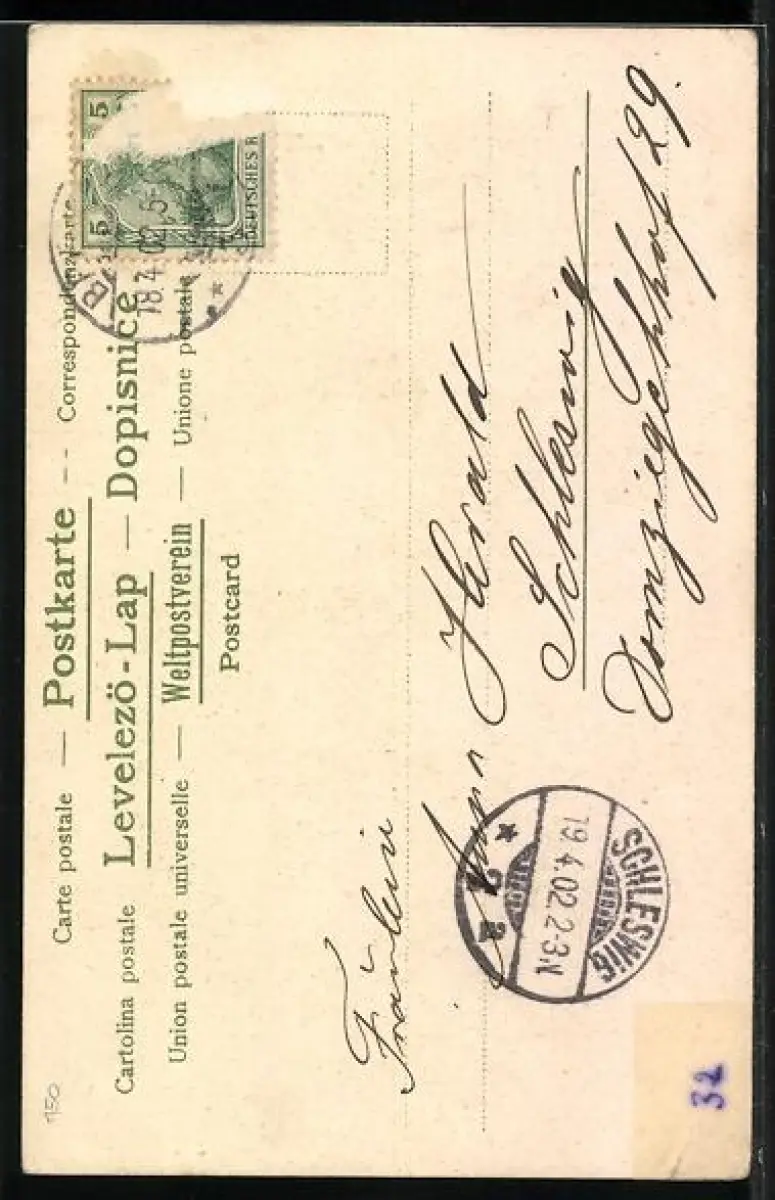 Carte postale — Postkarte -- Correspondenzkarte
Cartolina postale Levelezö-Lap — Dopisnice
Union postale universelle — Weltpostverein — Unione postale
Postcard
5
5
DEUTSCHES R
18.4.02. 5-
Fräulein
Harald
Schleswig
Domziegelhof 29.
SCHLESWIG
19.4.02. 2-3.N
* 2 a
32
150